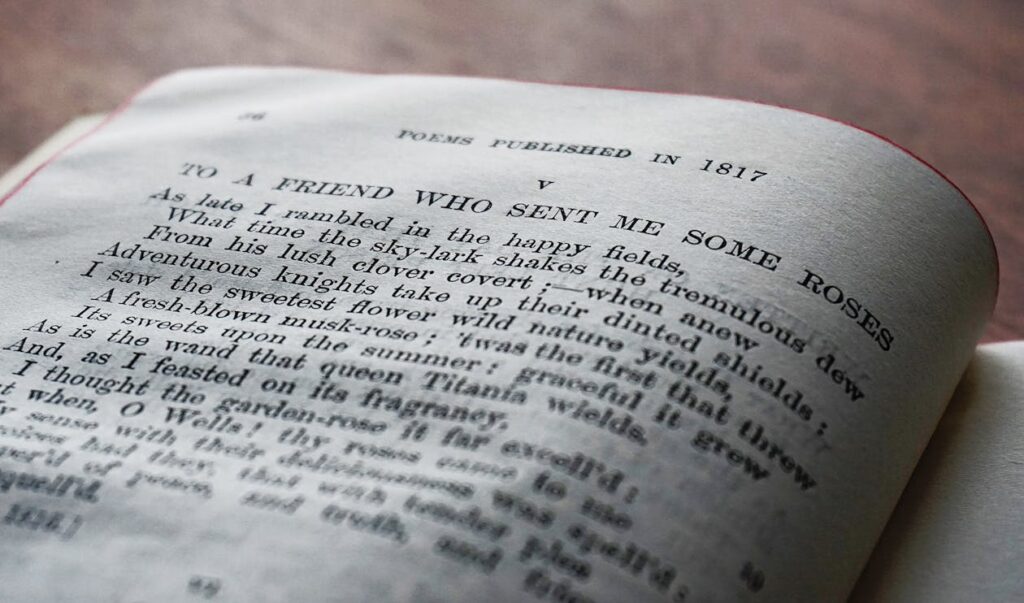 POEMS PUBLISHED IN 1817
V
TO A FRIEND WHO SENT ME SOME ROSES
As late I rambled in the happy fields,
What time the sky-lark shakes the tremulous dew
From his lush clover covert;—when anew
Adventurous knights take up their dinted shields;
I saw the sweetest flower wild nature yields,
A fresh-blown musk-rose; 'twas the first that threw
Its sweets upon the summer: graceful it grew
As is the wand that queen Titania wields.
And, as I feasted on its fragrancy,
I thought the garden-rose it far excell'd;
when, O Wells! thy roses came to me
sense with their deliciousness was spell'd:
had they, that with tender plea
of peace, and truth, and
quell'd.
10